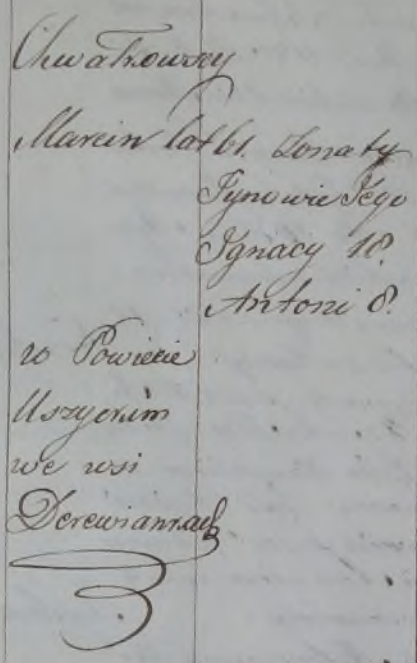 Chwatkowscy
Marcin lat 61. żonaty
Synowie Jego
Ignacy 18.
Antoni 8.
w Powiecie
Uszyckim
we wsi
Derewiankach